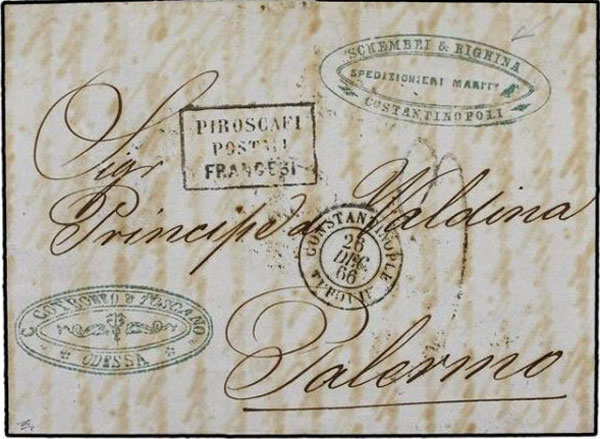 SCHEMBRI & BIGNINA
SPEDIZIONIERI MARITT
COSTANTINOPOLI
PIROSCAFI
POSTALI
FRANCESI
Sigr
Principe di Valdina
CONSTANTINOPLE
26
DEC.
66
TURQUIE
Palermo
ODESSA